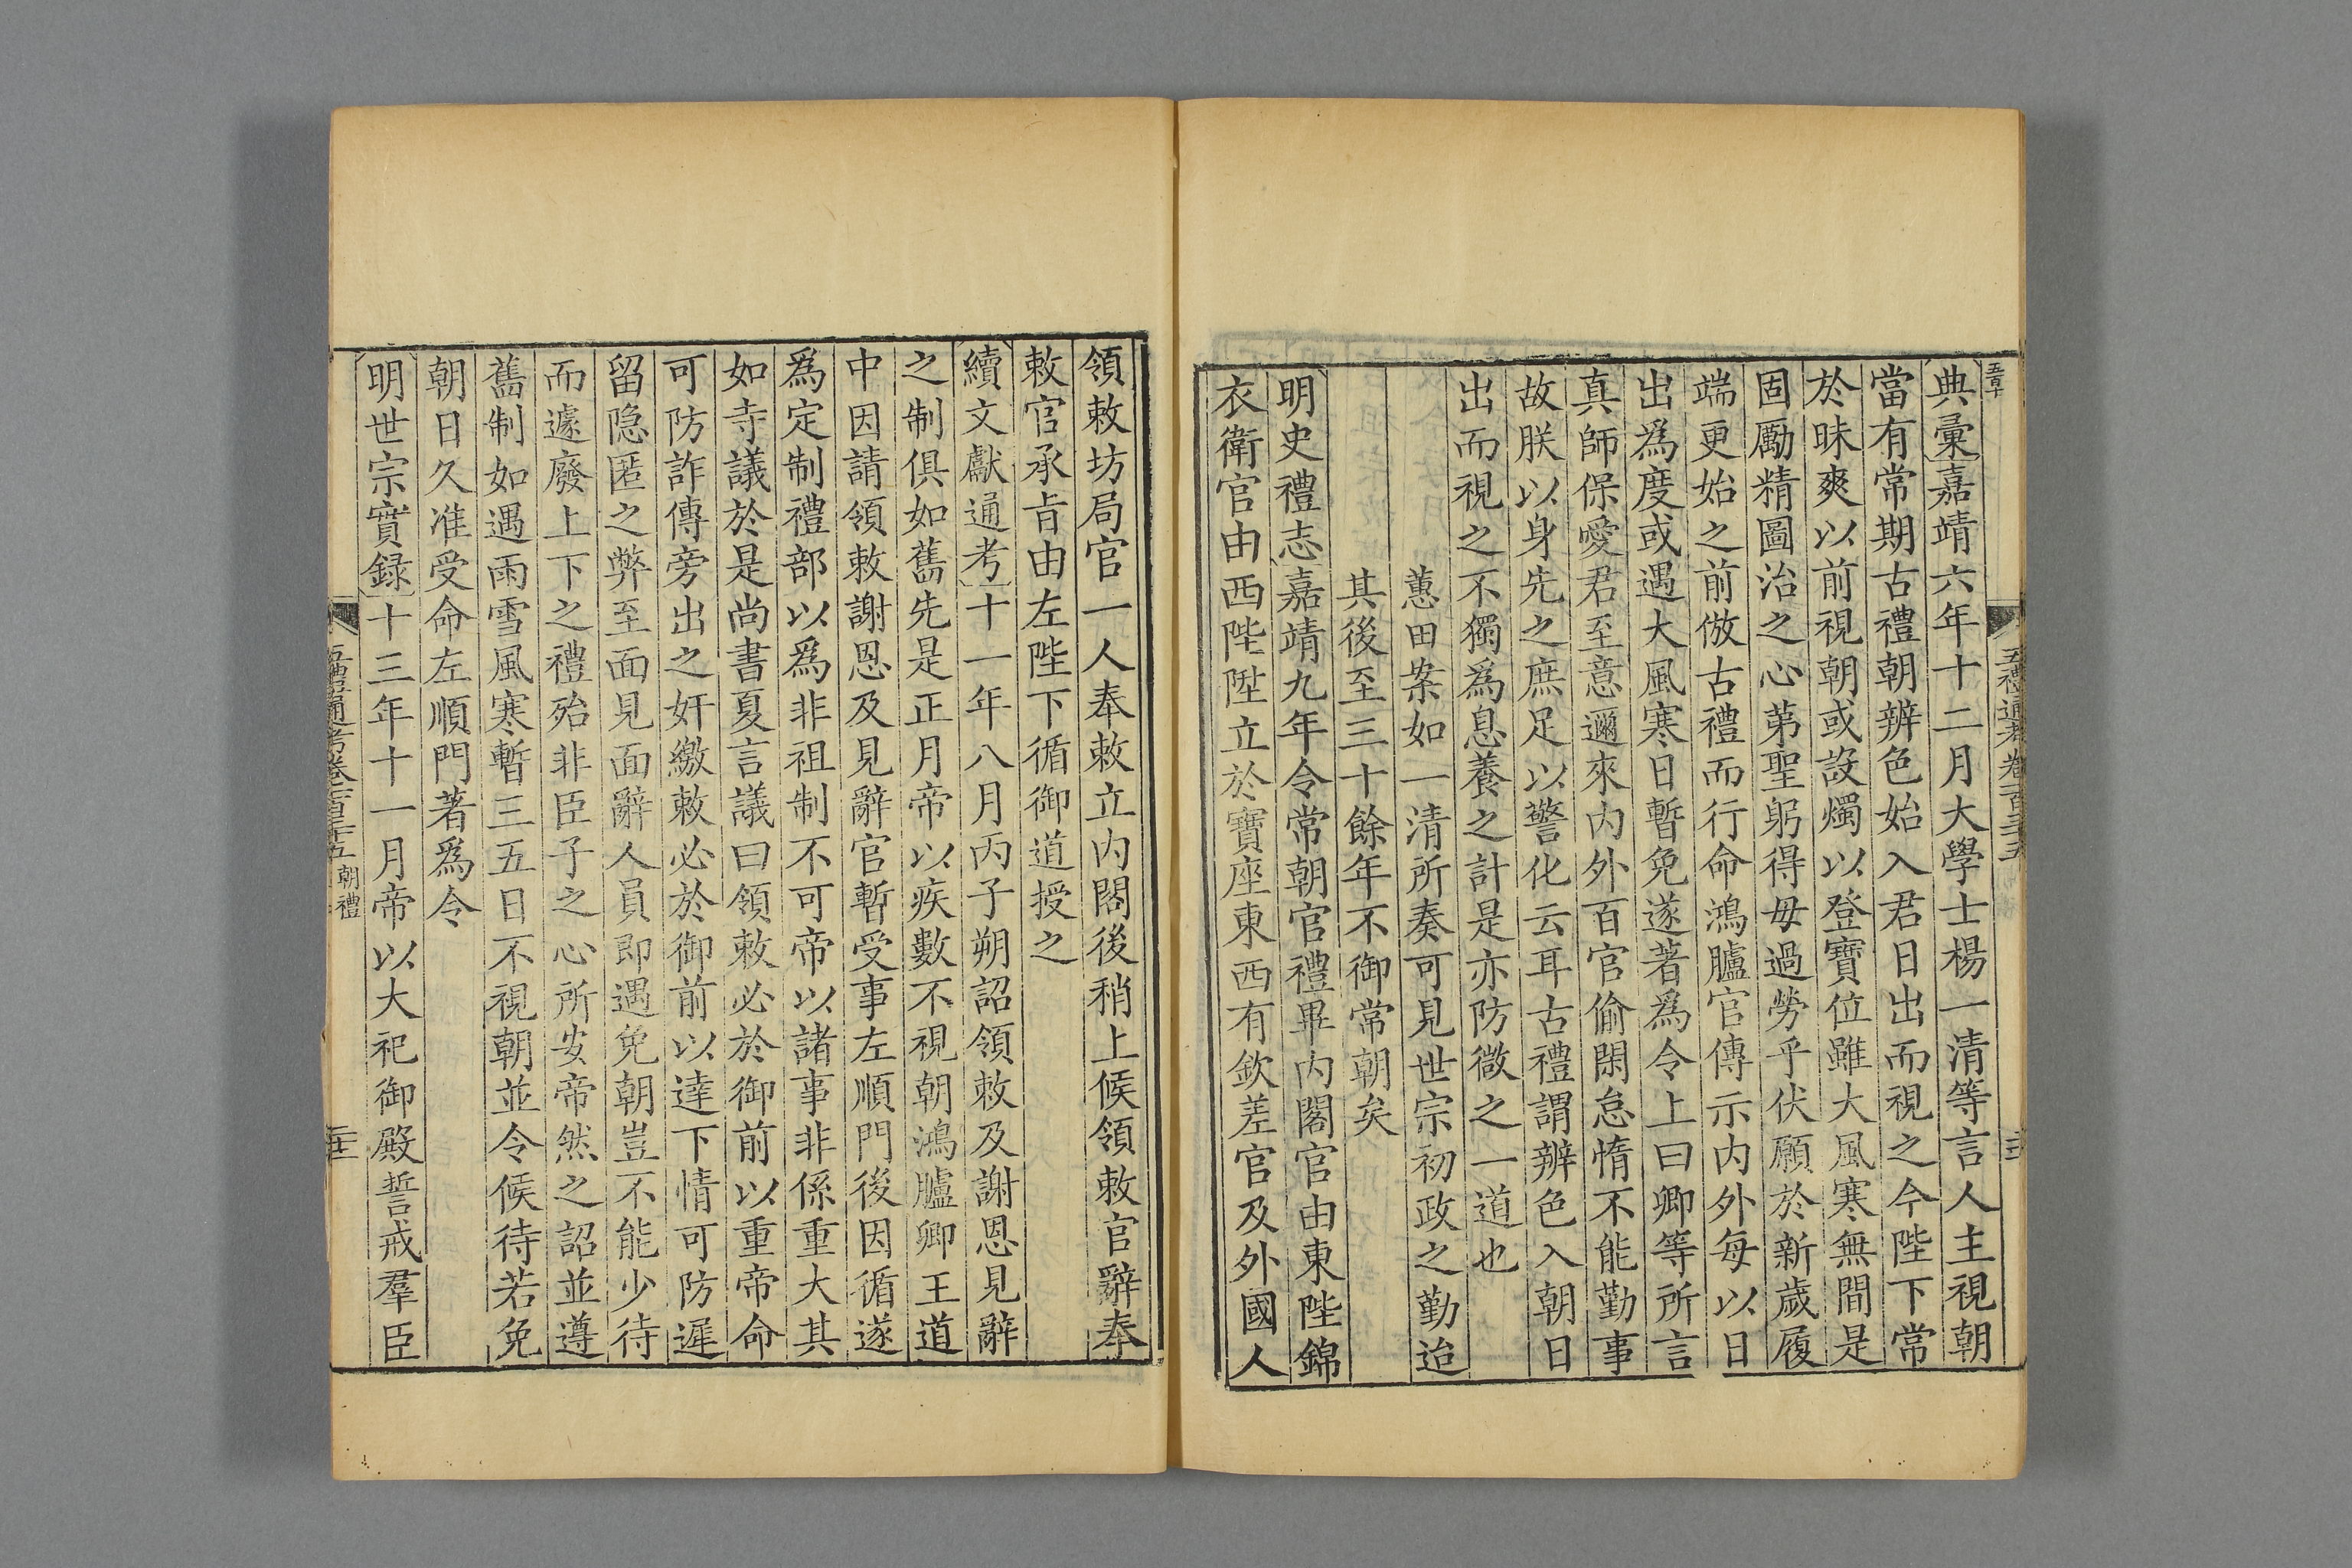 典彙嘉靖六年十二月大學士楊一清等言人主視朝
當有常期古禮朝辨色始入君日出而視之今陛下常
於昧爽以前視朝或設燭以登寶位雖大風寒無間是
固勵精圖治之心第聖躬得毋過勞乎伏願於新歲履
端更始之前倣古禮而行命鴻臚官傳示内外每以日
出爲度或遇大風寒日暫免遂著爲令上曰卿等所言
真師保愛君至意邇來内外百官偷閑怠惰不能勤事
故朕以身先之庶足以警化云耳古禮謂辨色入朝日
出而視之不獨爲息養之計是亦防微之一道也
蕙田案如一清所奏可見世宗初政之勤迨
其後至三十餘年不御常朝矣
明史禮志嘉靖九年令常朝官禮畢内閣官由東陛錦
衣衛官由西陛陞立於寶座東西有欽差官及外國人
領敕坊局官一人奉敕立内閣後稍上候領敕官辭奉
敕官承旨由左陛下循御道授之
續文獻通考十一年八月丙子朔詔領敕及謝恩見辭
之制俱如舊先是正月帝以疾數不視朝鴻臚卿王道
中因請領敕謝恩及見辭官暫受事左順門後因循遂
爲定制禮部以爲非祖制不可帝以諸事非係重大其
如寺議於是尚書夏言議曰領敕必於御前以重帝命
可防詐傳旁出之奸繳敕必於御前以達下情可防遲
留隱匿之弊至面見面辭人員即遇免朝豈不能少待
而遽廢上下之禮殆非臣子之心所安帝然之詔並遵
舊制如遇雨雪風寒暫三五日不視朝並令候待若免
朝日久准受命左順門著爲令
明世宗實録十三年十一月帝以大祀御殿誓戒羣臣
五禮通考卷一百三十五 朝禮